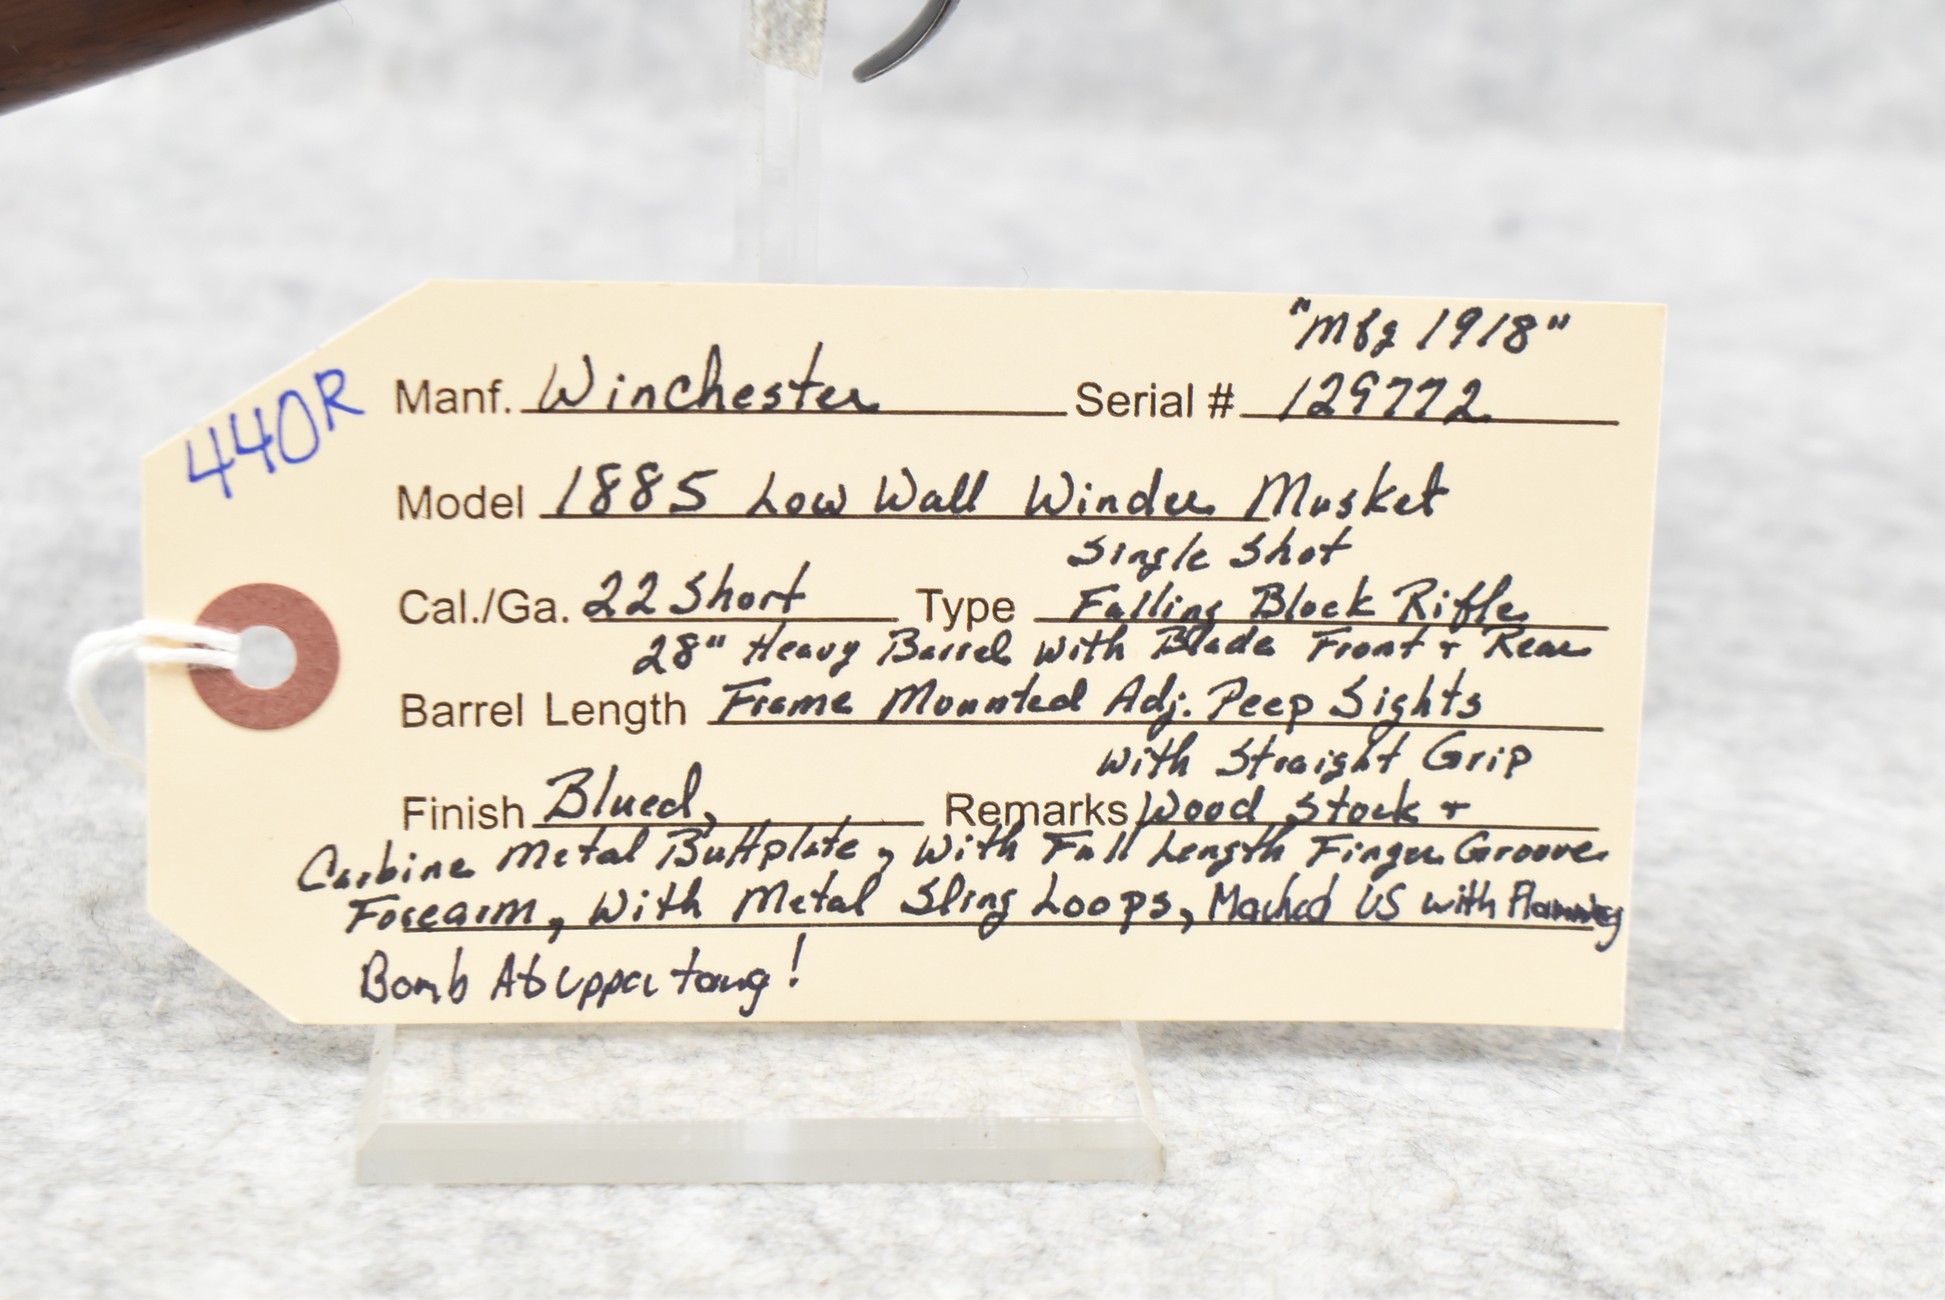 "Mfg 1918"
440R
Manf. Winchester Serial # 129772
Model 1885 Low Wall Winder Musket
Single Shot
Cal./Ga. 22 Short Type Falling Block Rifle
28" Heavy Barrel with Blade Front + Rear
Barrel Length Frame Mounted Adj. Peep Sights
with Straight Grip
Finish Blued, Remarks Wood Stock +
Carbine Metal Buttplate, With Full Length Finger Groove
Forearm, With Metal Sling Loops, Marked US with Flaming
Bomb At upper tang!